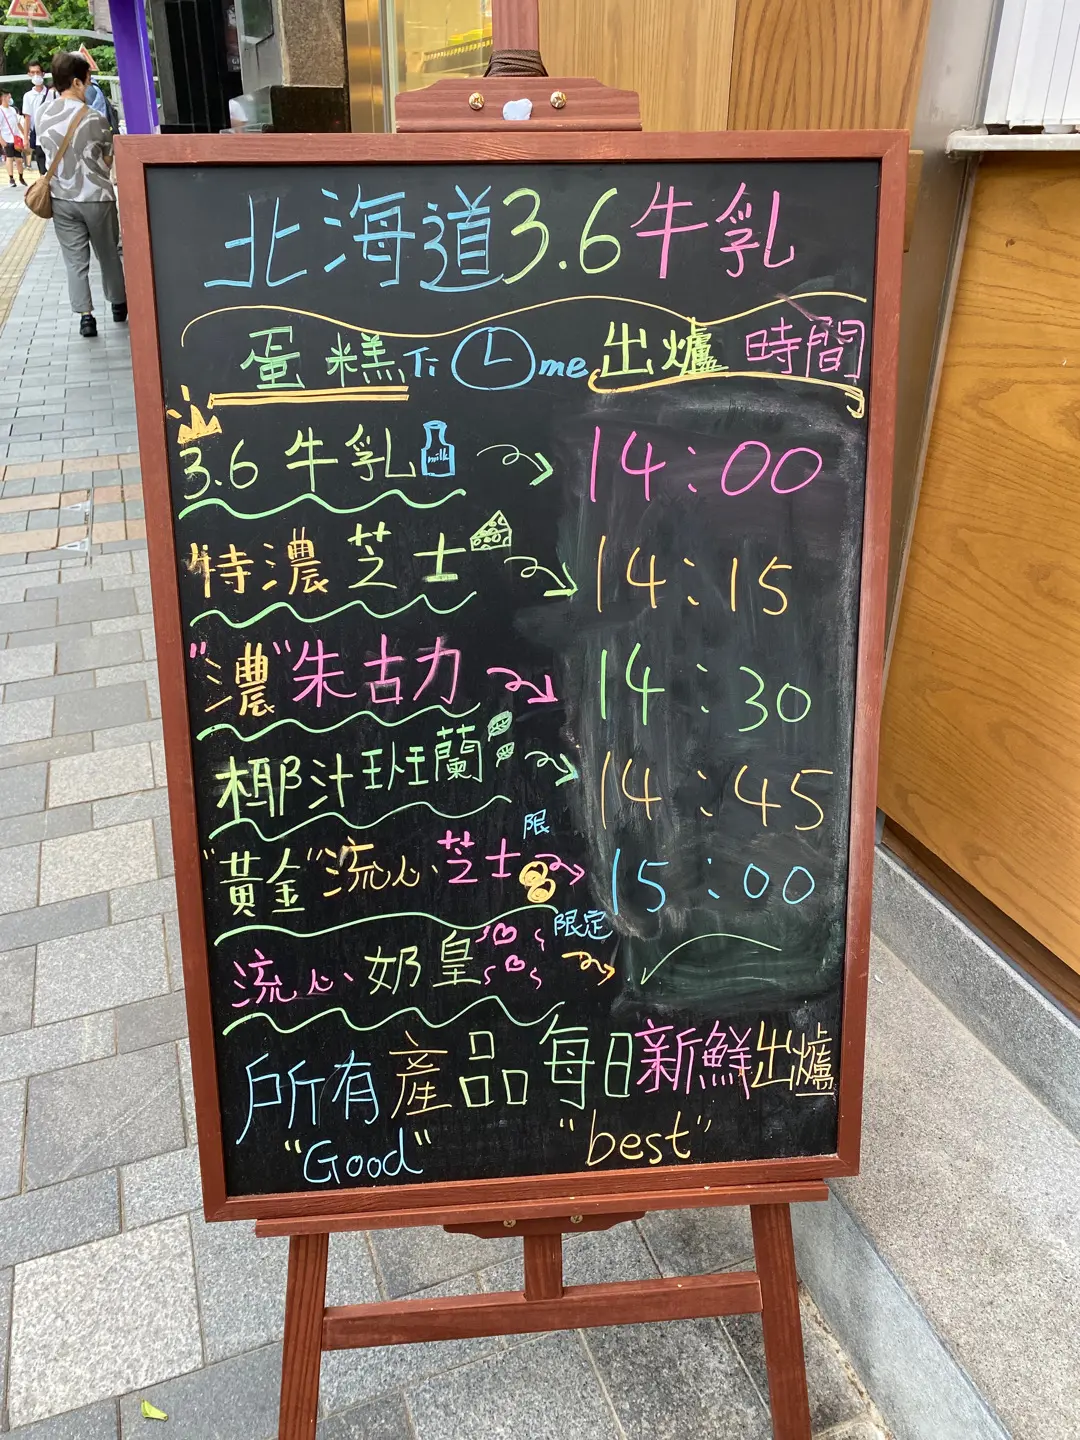 北海道3.6牛乳
蛋糕Time出爐時間
3.6牛乳 milk 14:00
特濃芝士 14:15
"濃"朱古力 14:30
椰汁班蘭 14:45
"黃金"流心芝士 限 15:00
流心奶皇 限定
所有產品每日新鮮出爐
"Good" "best"